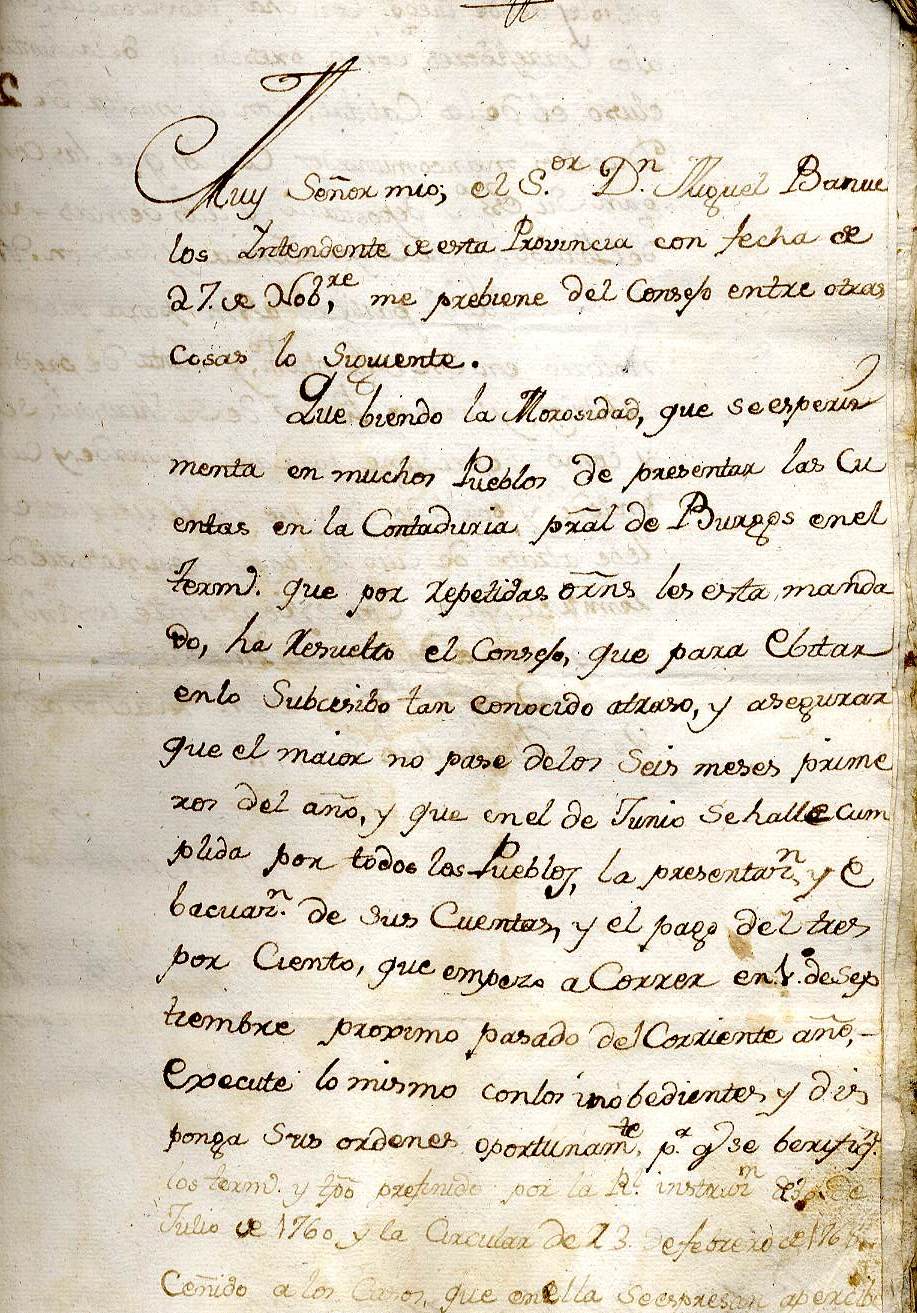 Muy Señor mio; el S.or Dn. Miguel Banue
los Intendente de esta Provincia con fecha de
27. de Nobre, me prebiene del Consejo entre otras
cosas lo Siguiente.
Que biendo la Morosidad, que se esperi
menta en muchos Pueblos de presentar las Cu
entas en la Contaduria pral de Burgos en el
termo. que por repetidas orns les esta manda
do, ha Resuelto el Consejo, que para Ebitar
en lo Subcesibo tan conocido atraso, y asegurar
que el maior no pase de los Seis meses prime
ros del año, y que en el de Junio se halle cum
plida por todos los Pueblos, la presentazn, y E
bacuazn. de sus Cuentas, y el pago del tres
por Ciento, que empezo a Correr en 1.º de Sep
tiembre proximo pasado del Corriente año,
Execute lo mismo con los inobedientes y dis
ponga Sus ordenes oportunamte. pr. qe se berifiqn.
los termos. y tpo prefinido por la Rl. instruzn de 30 de
Julio de 1760 y la Circular de 23. de febrero de
Ceñido a los Casos, que en ella se espresan apercib